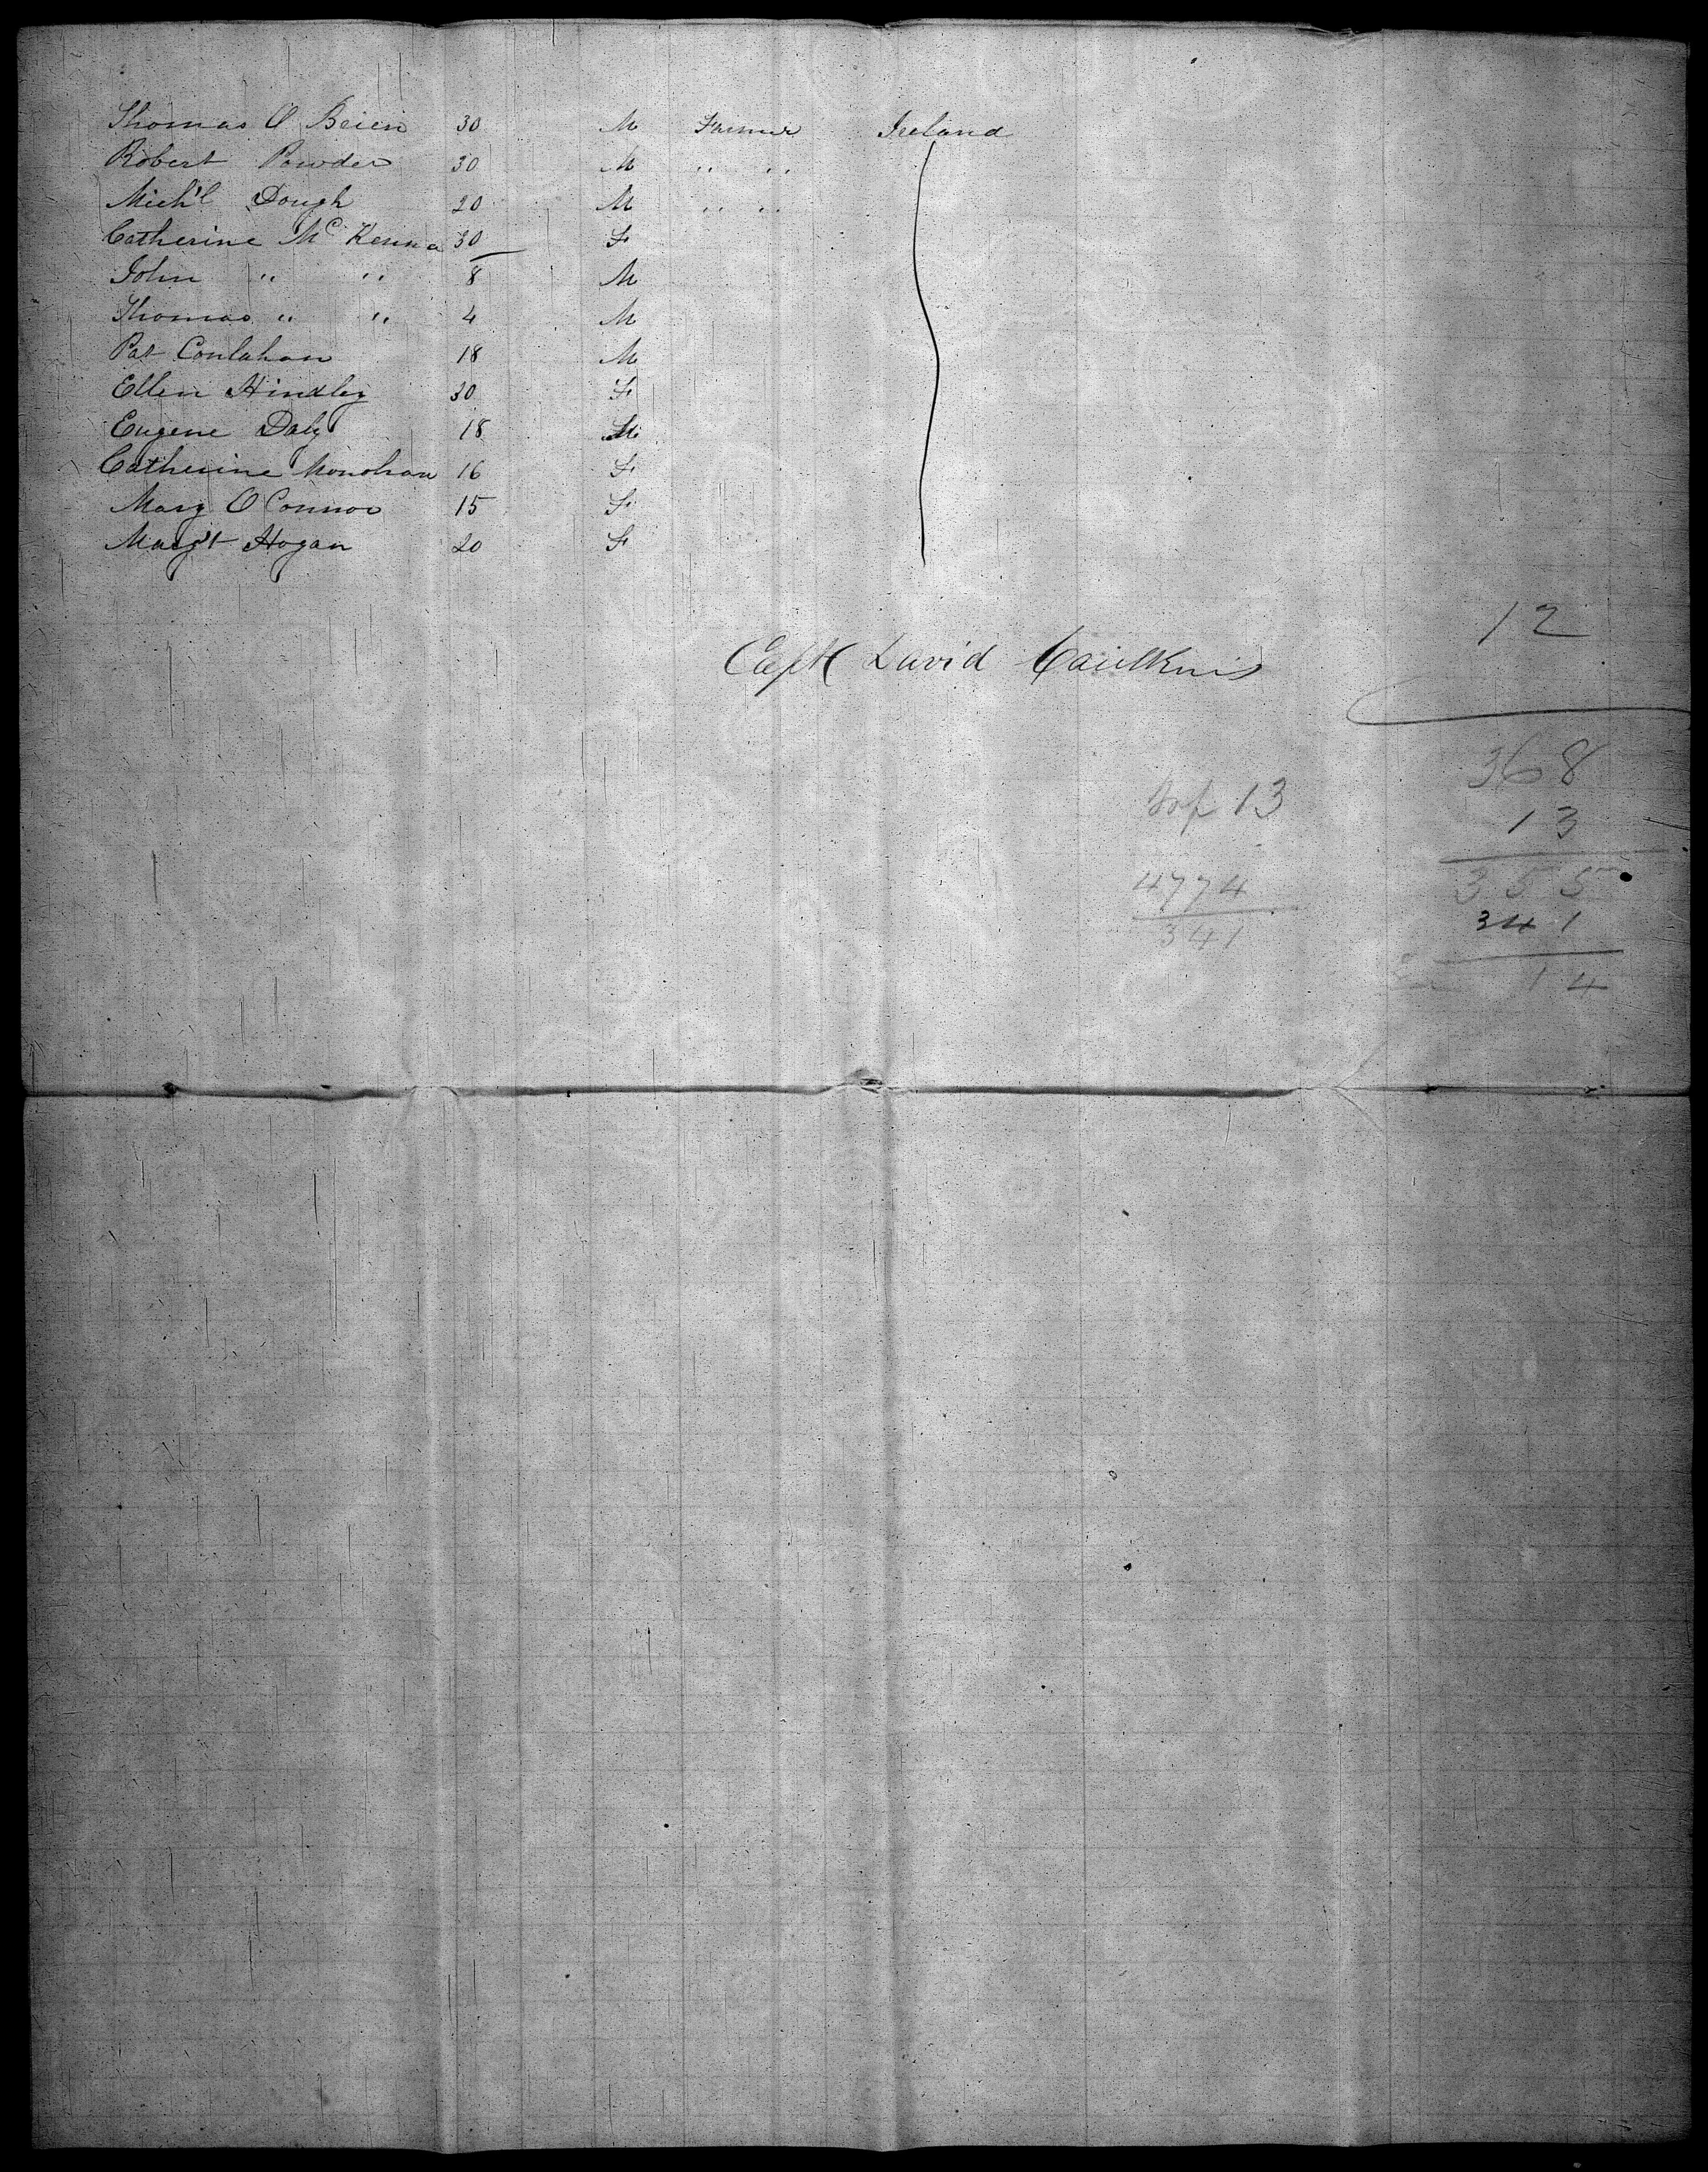 Thomas O Beien 30 M Farmer Ireland
Robert Powder 30 M " "
Mich'l Dough 20 M " "
Catherine McKenna 30 F
John " " 8 M
Thomas " " 4 M
Pat Conlahan 18 M
Ellen Hindley 30 F
Eugene Daly 18 M
Catherine Monohan 16 F
Mary O Connor 15 F
Marg't Hogan 20 F
12
Capt David Caulkins
368
13
13
355
4774
341
341
14